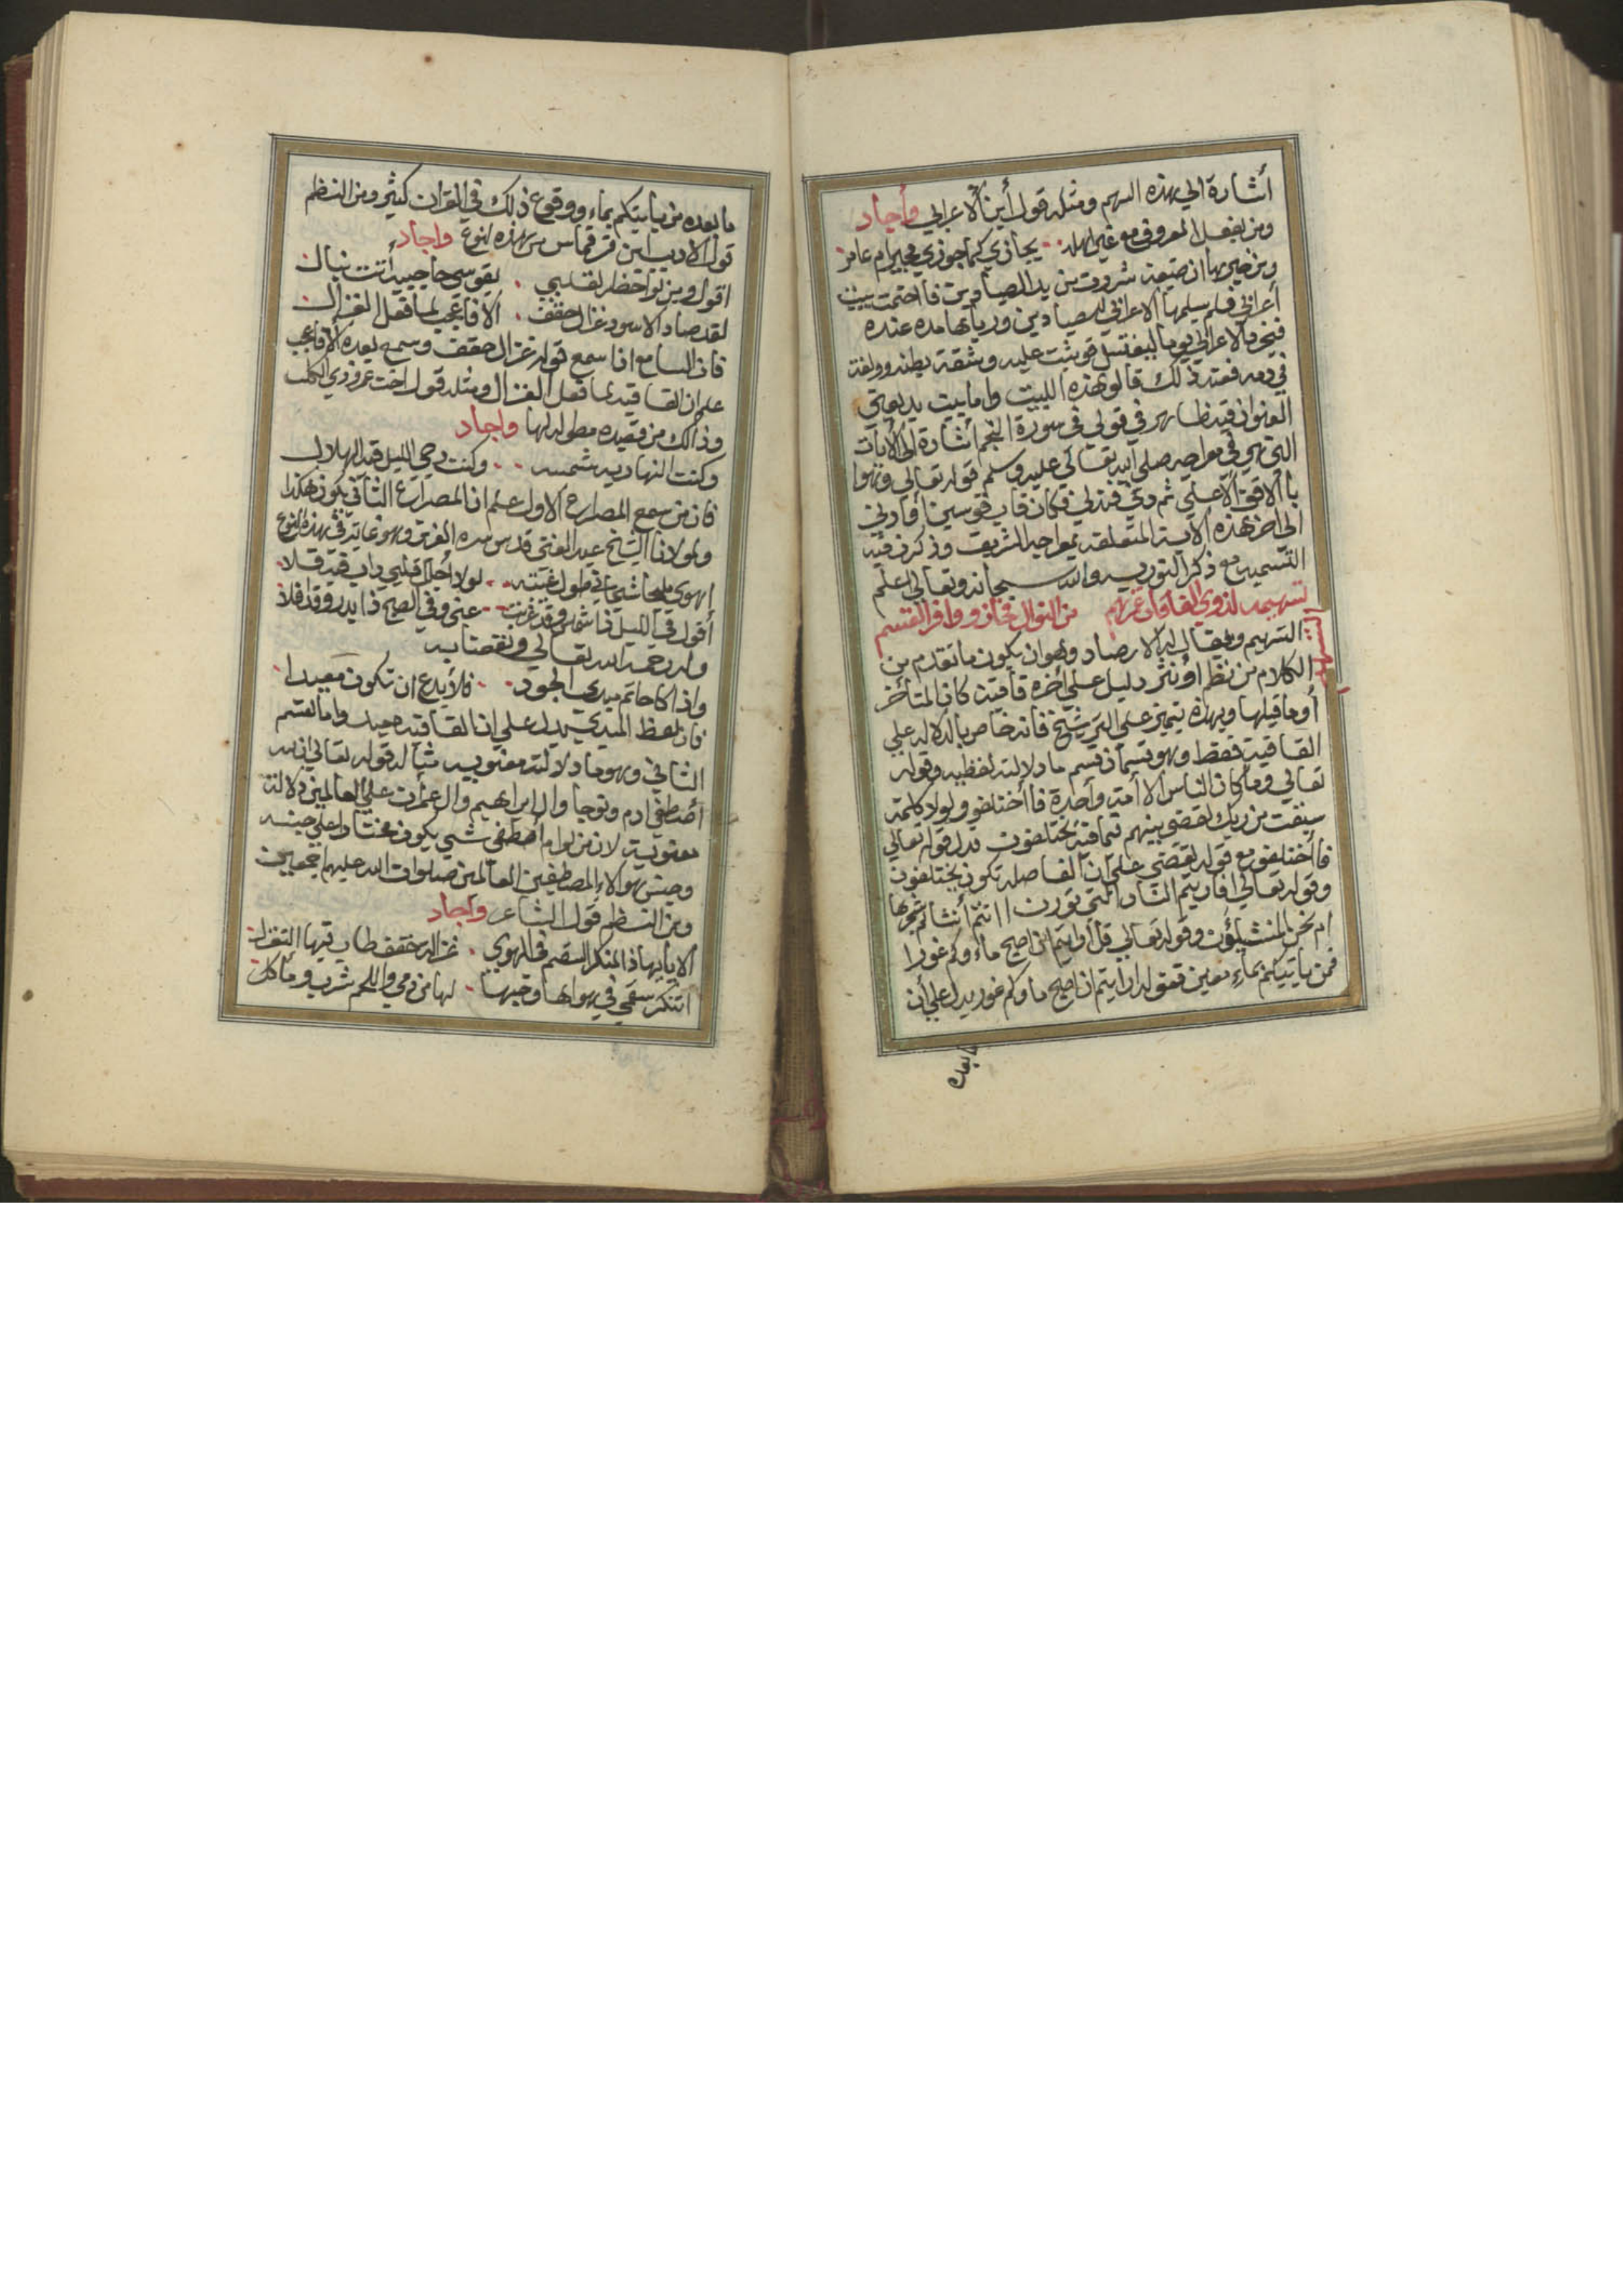 أشارة الي هذه السهم ومثله قول أبن الاعرابي وأجاد
ومن يفعل المعروف مع غير اهله يجازي كما جوزي مجير ام عامر
ومن خبرها ان ضبعة شردت من يد الصيادين فا احتمت ببيت
أعرابي فلم يسلمها الاعرابي للصيادين ورباها مده عنده
فنحو الاعرابي يوما ليغتسل فوثبت عليه وشقة بطنه وولغة
في دمه فعند ذلك قالو هذه البيت واما بيت بديعتي
العنوان فيه ظاهر في قولي في سورة النجم أشارة الي الايات
التي هي في معراجه صلي الله تعالي عليه وسلم قوله تعالي وهوا
باالافق الأعلي ثم دني فتدلي فكان قاب قوسين أو ادني
الي اخر هذه الاية المتعلقة بمعراجه الشريف وذكرن فيه
التسمية مع ذكر التورية والله سبحانه وتعالي اعلم
تسهيمه لذوي الفاقات عزهم من النوال فحازو وافر القسم
التسهيم
التسهيم ويقال له الارصاد وهو ان يكون ما تقدم من
الكلام من نظم او نثر دليل علي أخره قافيت كان المتأخر
أو ما قبلها وبهذه يتميز علي التوشيخ فانه خاص بالدلاله علي
القافية فقط وهو قسمان قسم ما دلالته لفظيه وقوله
تعالي وما كان الناس الا أمة واحدة فا أختلفو ولولا كلمة
سبقت من ربك لقضي بينهم فيما فيه يختلفون فدل قوله تعالي
فا أختلفو مع قوله لقضي علي ان الفاصله تكون يختلفون
وقوله تعالي افاريتم النار التي تورن ا انتم أنشاتم شجرتها
ام نحن المنشيؤن وقوله تعالي قل أرايتم ان اصبح ماء وكم غورا
فمن ياتيكم بماء معين فقوله ارايتم ان اصبح ما وكم غور يدل علي أن
ما بعده
ما بعده من ياتيكم بماء ووقوع ذلك في القران كثير ومن النظم
قول الاديب ابن قرقماس من هذه النوع واجاد
اقول ومن نواحظه لقلبي بقوسي حاجبيه أتت نبال
لقد صاد الاسود غزال حقف ألا فا عجب لما فعل الغزال
فان السامع اذا سمع قوله غزال حقف وسمع بعده ألا فاعجب
علم ان القافيه لما فعل الغزال ومثله قول اخت عمرو ذي الكلب
وذالك من قصيده مطوله لها واجاد
وكنت النهار به شمسه وكنت دجي الليل فيه الهلال
فان من سمع المصراع الاول علم ان المصراع الثاني يكون هكذا
ولمولانا الشيخ عبد الغني قدس سره العزيز وهو غاية في هذه النوع
اهوي مليحا شجاني طول غيبته لولا أجل قلبي ذاب فيه قلا
أقول في الليل ذا شمس وقد غربت عني وفي الصبح ذا بدر وقد افلا
وله رحمه الله تعالي ونفعنا به
واذا كا حاتم مبدي الجود فلا بدع ان تكون معيدا
فان لفظ المبدي يدل علي ان القافيه معيد واما القسم
الثاني وهو ما دلالته معنويه مثاله قوله تعالي ان الله
أصطفي ادم ونوحا وال ابراهيم وال عمران علي العالمين دلالة
معنوية لان من لوازم أصطفي شي يكون مختارا علي جنسه
وجنس هولاء المصطفين العالمين صلوات الله عليهم اجمعين
ومن النظم قول الشاعر وأجاد
الا يا ايها ذا المنكر السقم في الهوي غزاله حقف طاب فيها التغزل
اتنكر سقمي في هواها وحبها لها من دمي واللحم شرب ومأكل